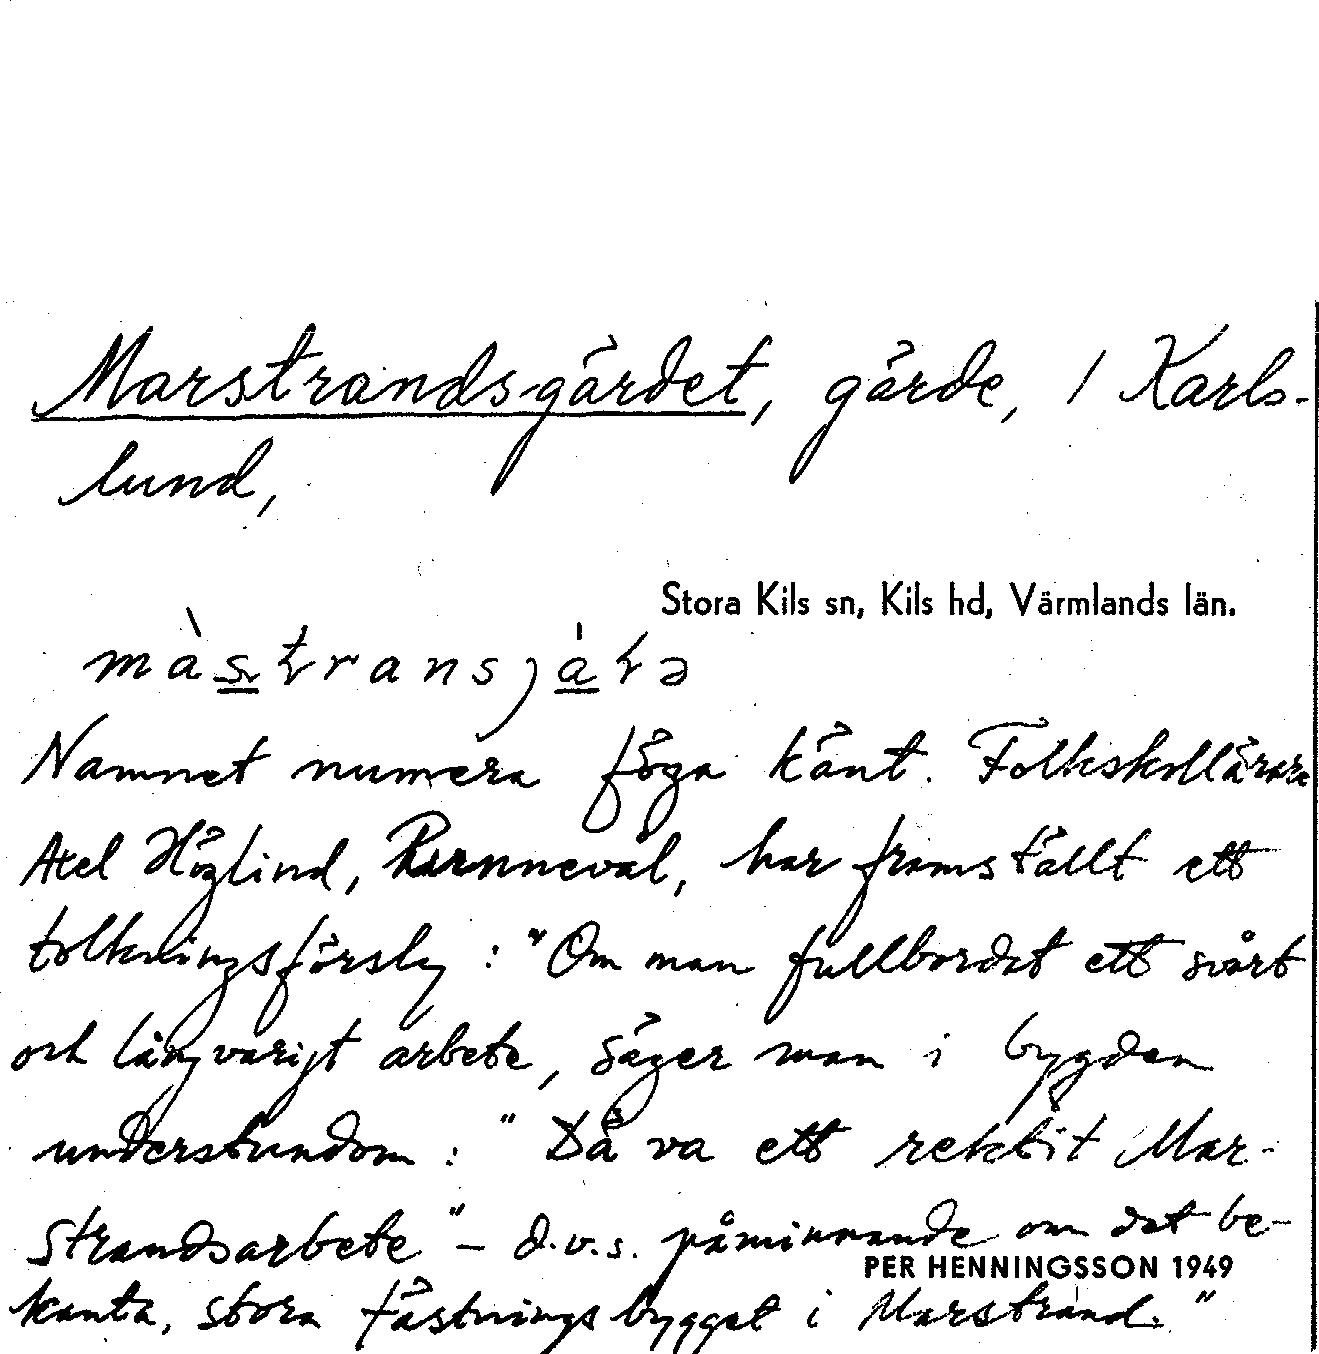 Marstrandsgärdet, gärde, / Karls-
lund,
Stora Kils sn, Kils hd, Värmlands län.
Namnet numera föga känt. Folkskollärare
Axel Höglind, Runneval, har framställt ett
tolkningsförslag : "Om man fullbordat ett svårt
och långvarigt arbete, säger man i bygden
understundom : "Dä va ett rektit Mar-
strandsarbete" – d.v.s. påminnande om det be-
PER HENNINGSSON 1949
kanta, stora fästningsbygget i Marstrand."